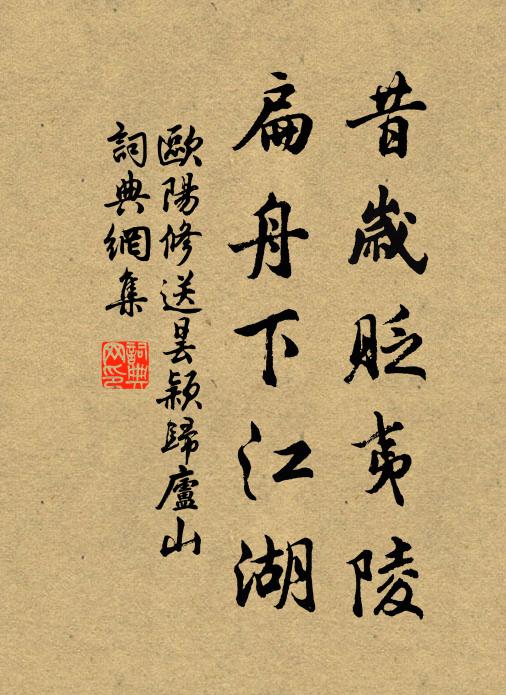 昔歲貶夷陵
扁舟下江湖
歐陽修送曇穎歸廬山
詞典網集
詞典网印